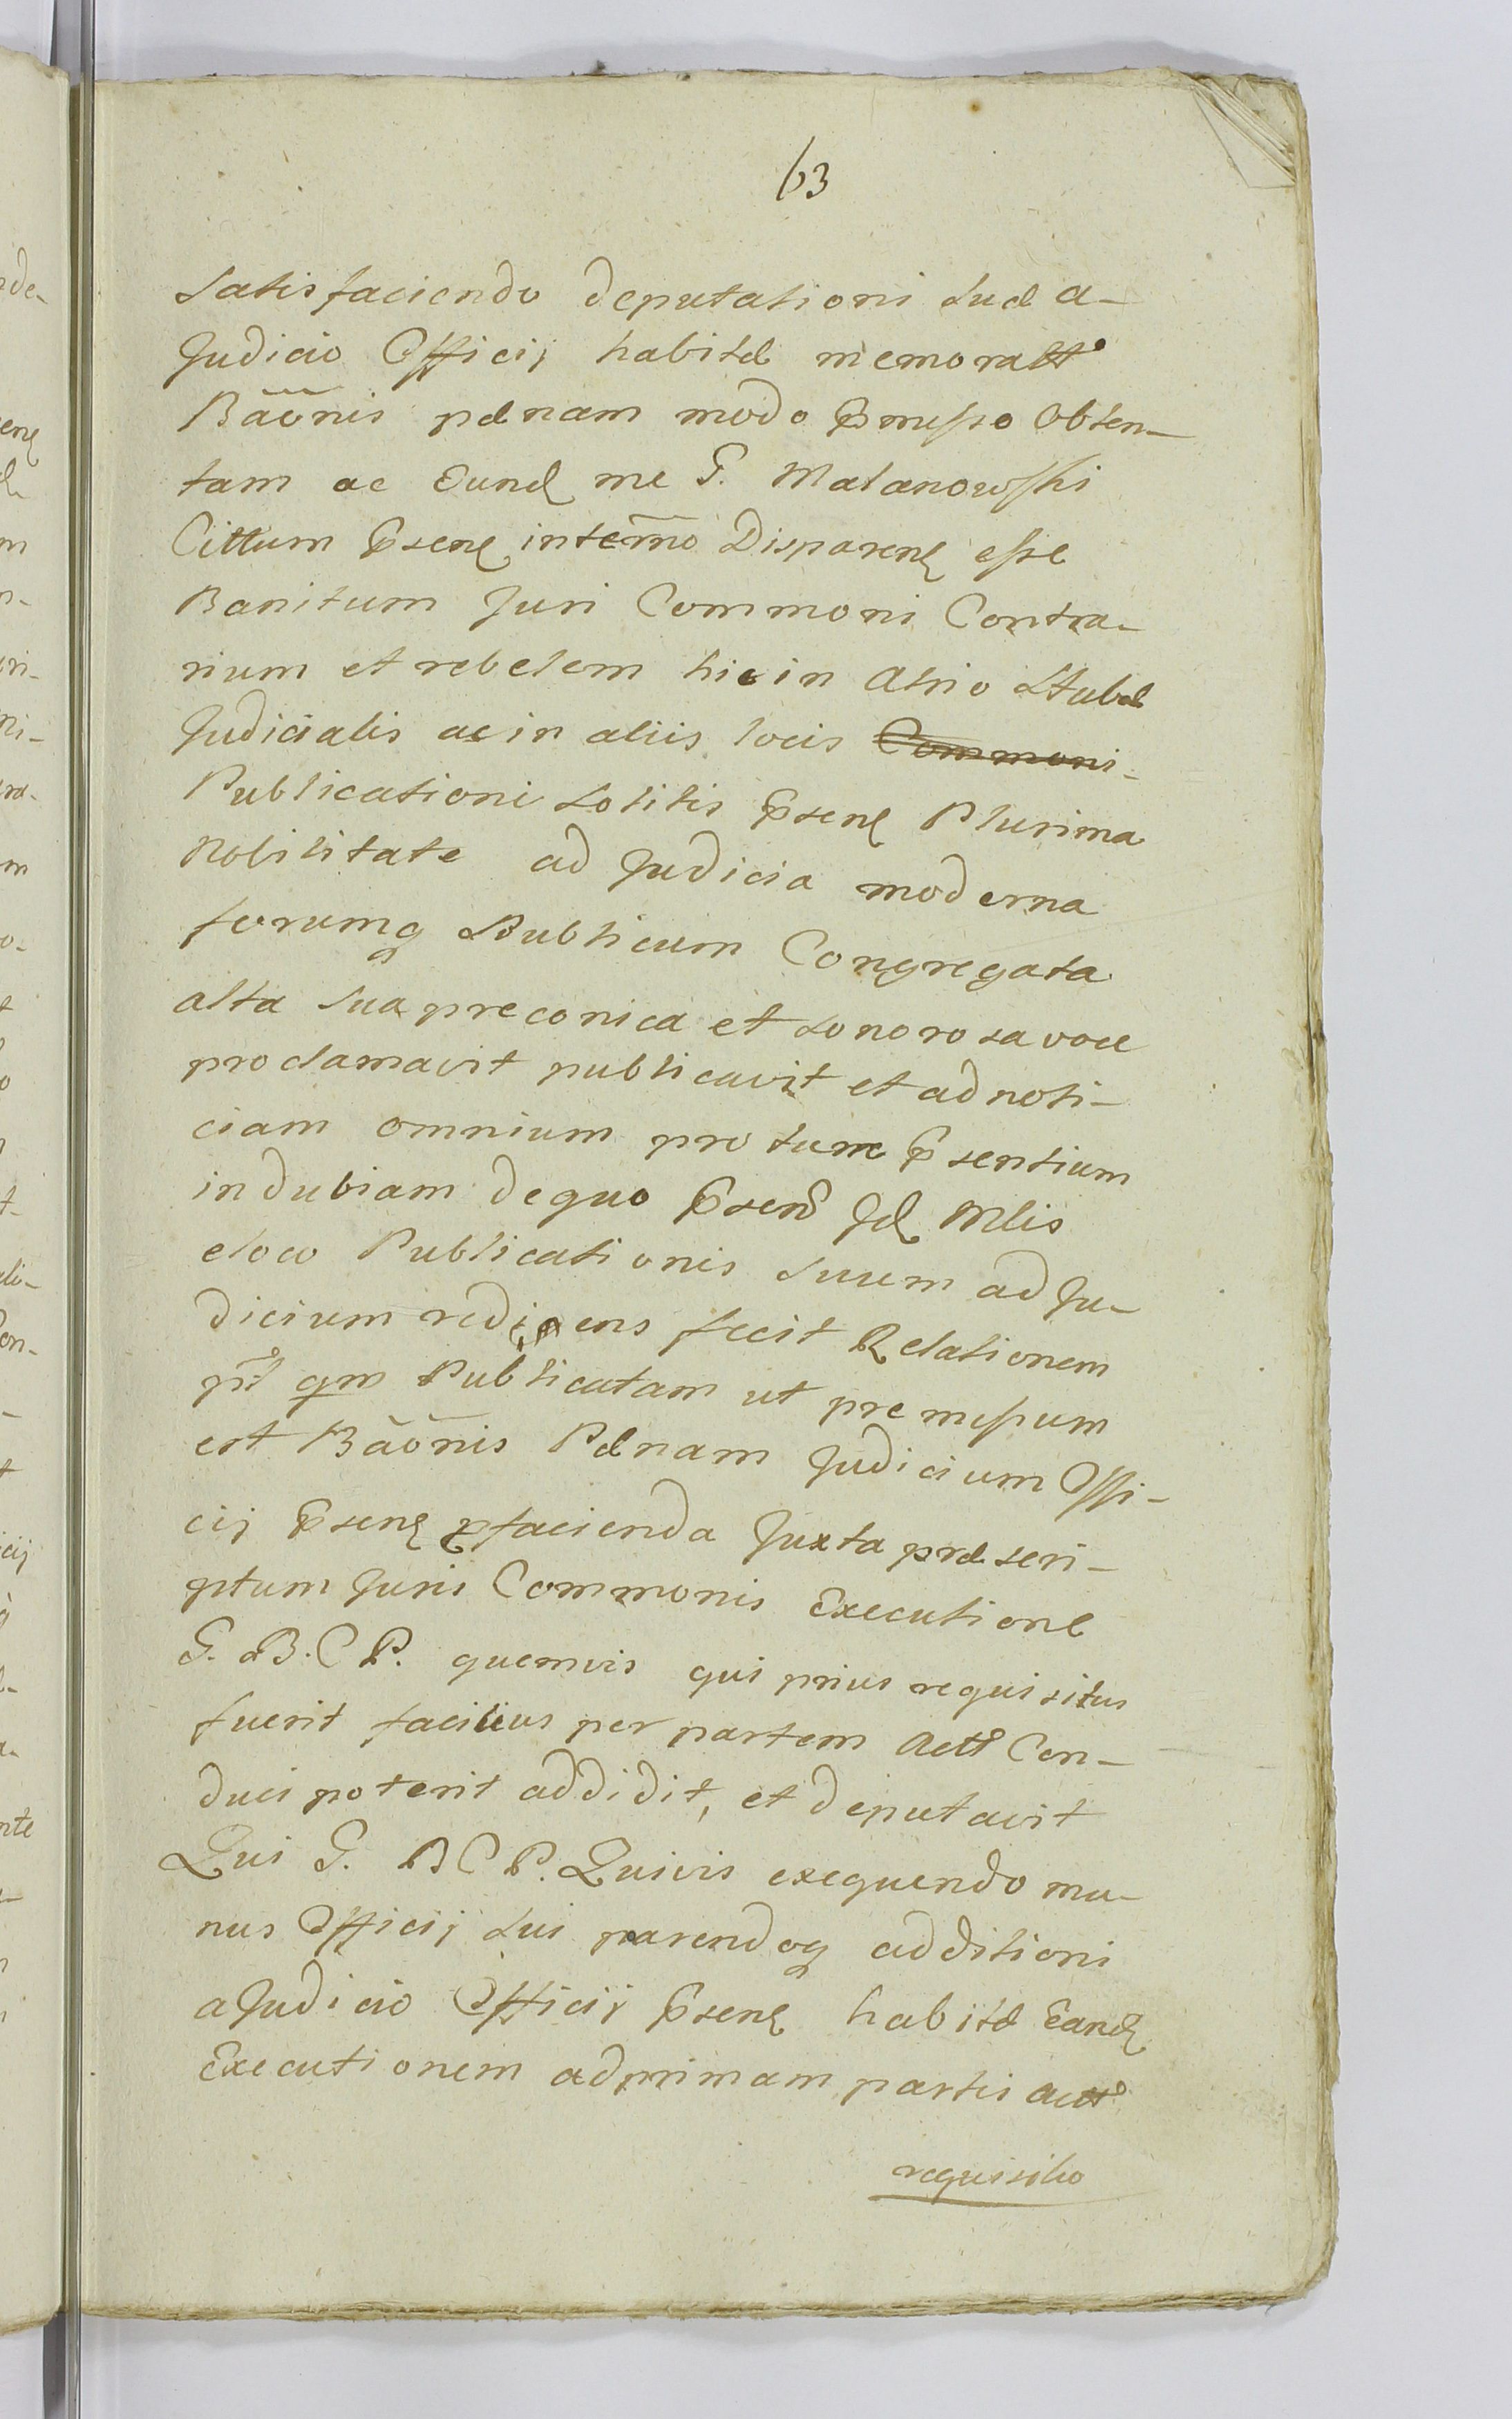 63
satisfaciendo deputationi suæ a-
Judicio Officij habitæ memoratt
Bãõnis pænam modo præmisso obten-
tam ac Eund me G. Matanowski
Cittum Præsen in termno Disparen esse
Banitum Juri Commoni Contra-
rium et rebelem hic in Atrio Stubæ
Judicialis ac in aliis locis Commoni-
Publicationi solitis Præsen Plurima
Nobilitate ad Judicia moderna
forumq Publicum Congregata
alta sua preconica et sonorosa voce
proclamavit publicavit et ad noti-
ciam omnium pro tunc Præsentium
indubiam dequo Præsen Jd Mlis
eloco Publicationis suum ad Ju-
dicium redigens fecit Relationem
qm Publicatam ut premissum
est Bãõnis Pænam Judicium Offi-
cij Præsen profacienda Juxta præscri-
ptum Juris Commonis Executione
G. B. C P. quemvis qui prius requisitus
fuerit facilius per partem Actt Con-
duci poterit addidit, et deputavit
Qui G. B C P. Quivis exequendo mu-
nus Officij sui parendoq additioni
a Judicio Officij Præsen habitæ Eand
Executionem ad primam partis Actt
requisitio